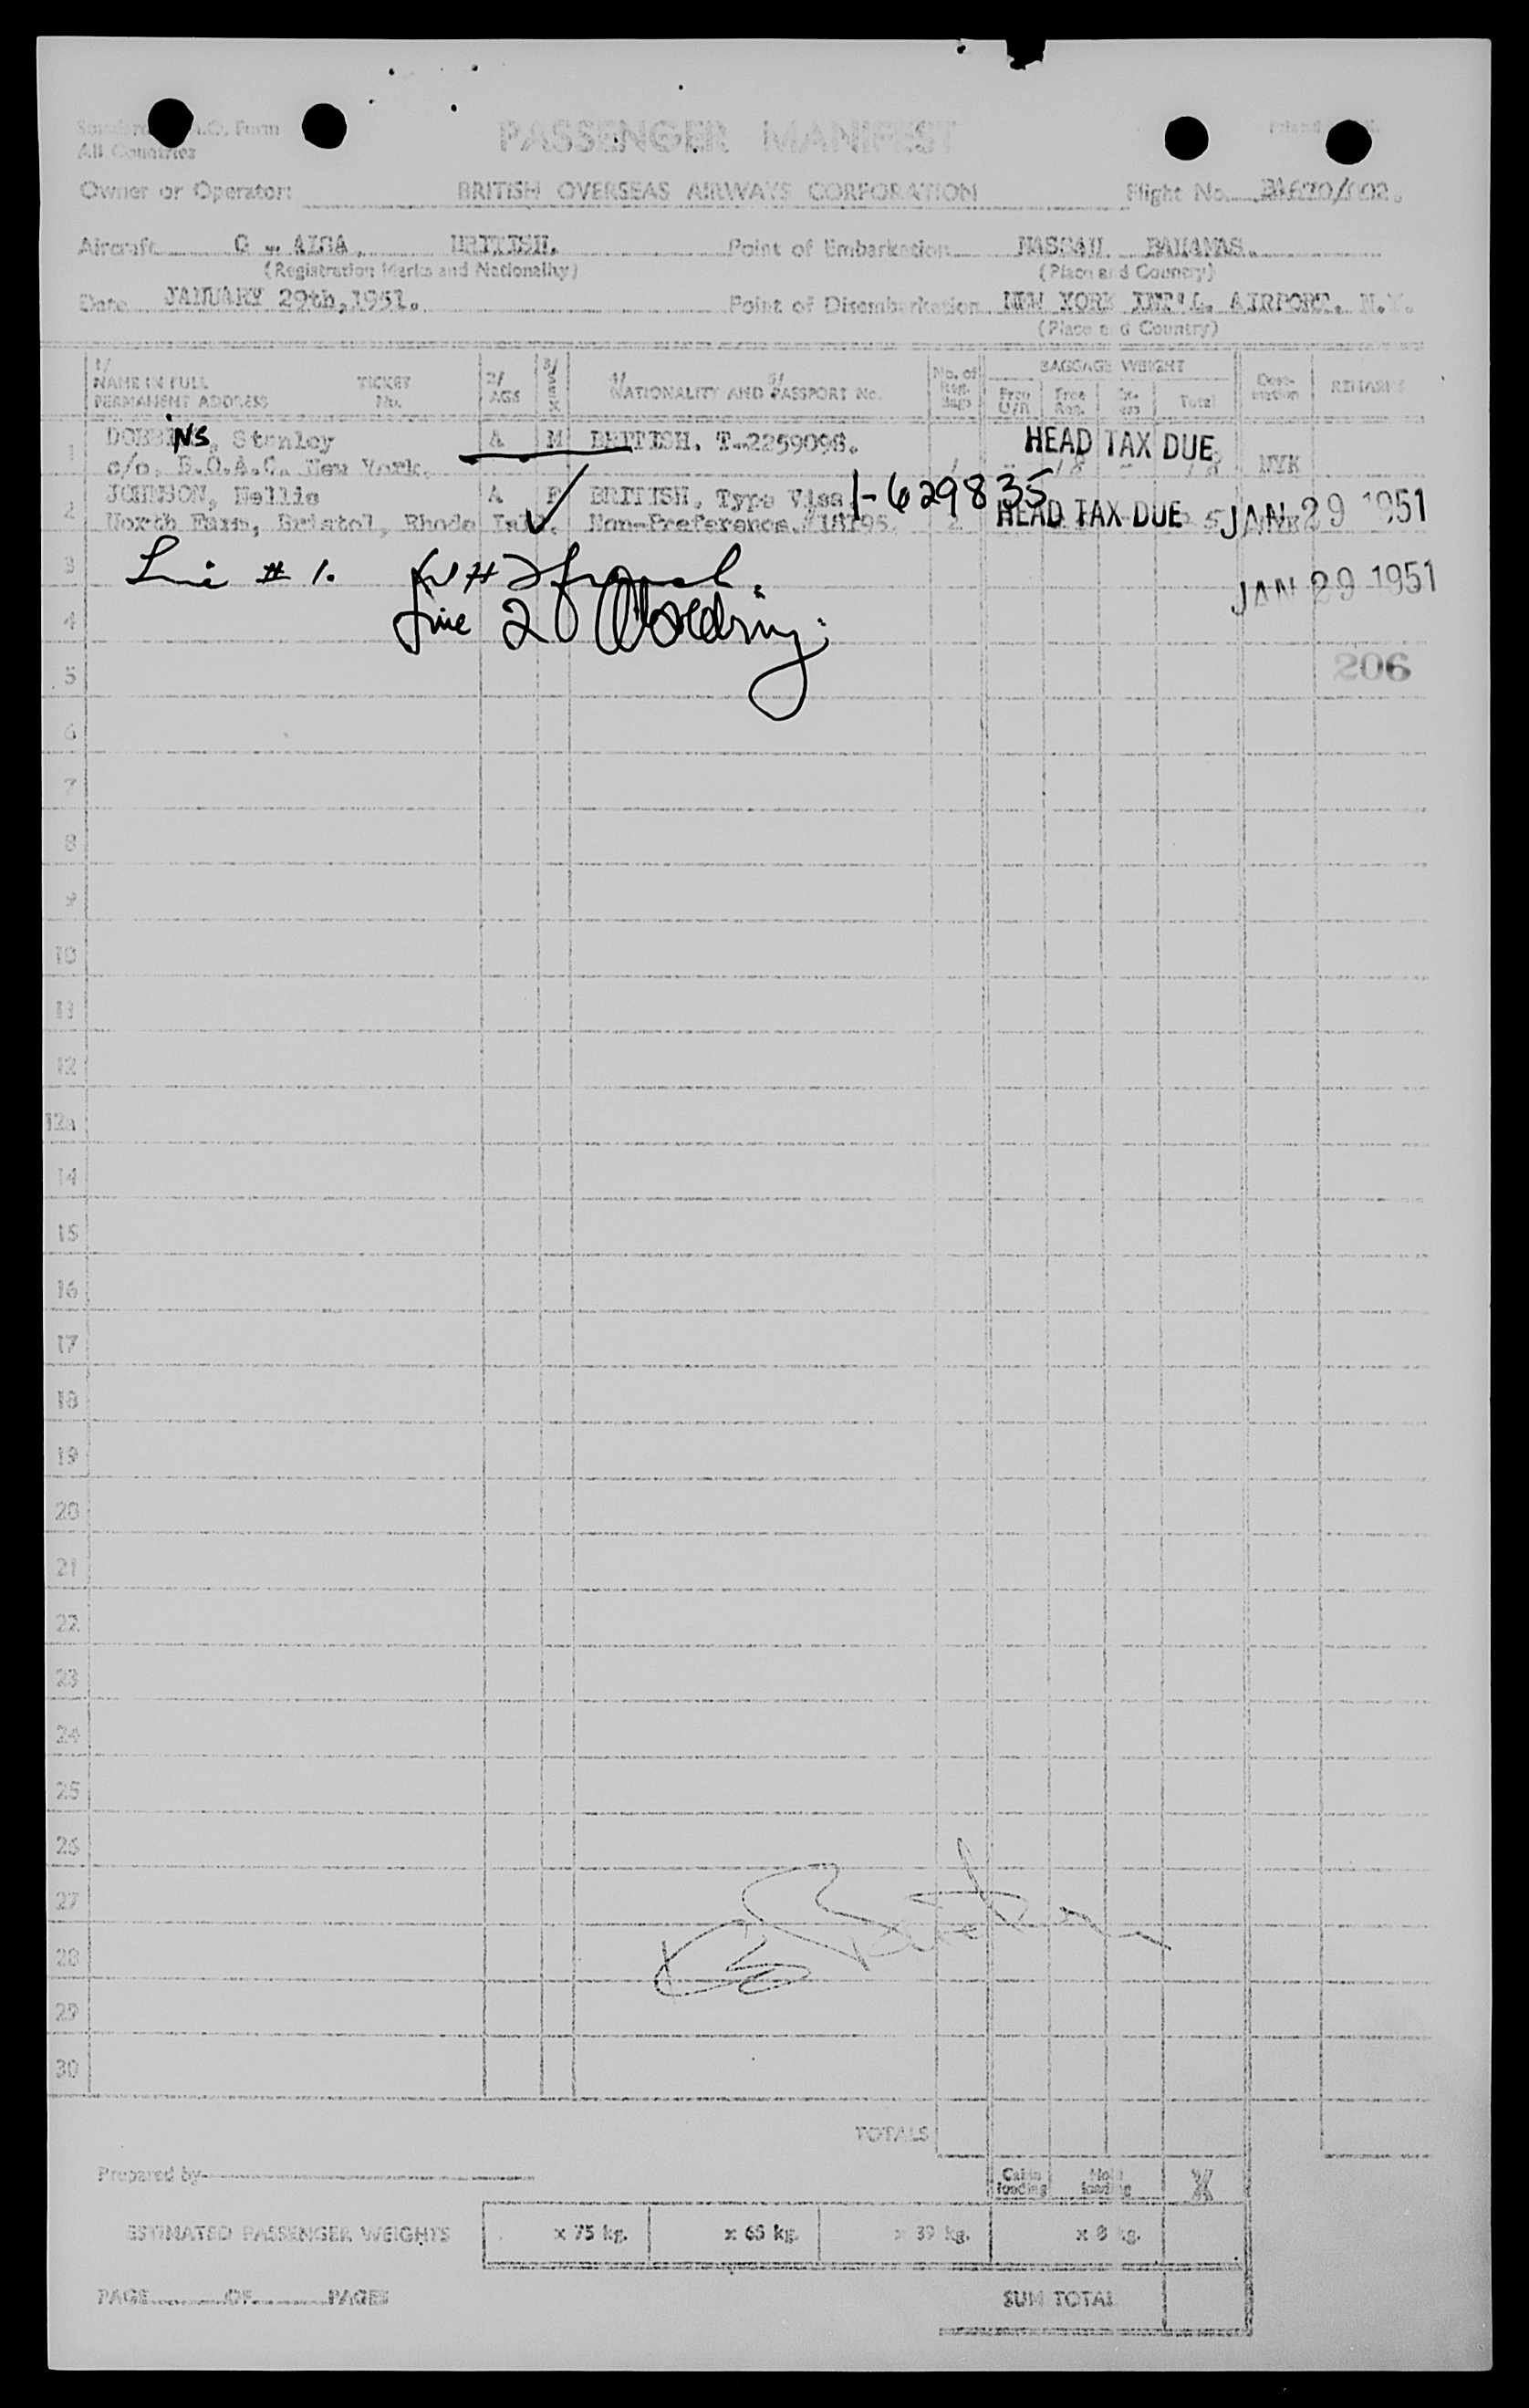 All Countries
PASSENGER MANIFEST
Owner or Operator: BRITISH OVERSEAS AIRWAYS CORPORATION Flight No.
Aircraft BRITISH. Point of Embarkation NASSAU. BAHAMAS.
(Registration Marks and Nationality) (Place and Country)
Date JANUARY 29th, 1951. Point of Disembarkation NEW YORK INT'L. AIRPORT. N.Y.
(Place and Country)
1/ NAME IN FULL TICKET 2/ 3/ 4/ 5/ No. of BAGGAGE WEIGHT
PERMANENT ADDRESS No. AGE SEX NATIONALITY AND PASSPORT No. Total REMARKS
1 DOBBINS, Stanley A M BRITISH. T-2259098. HEAD TAX DUE
c/o. B.O.A.C. New York. 1 18 18 NYK
2 JOHNSON, Nellie A F BRITISH, Type Visa 1-629835
North Farm, Bristol, Rhode Isl. Non-Preference. 2 HEAD TAX DUE JAN 29 1951
3 Line # 1.
JAN 29 1951
4 Line 2
5 206
6
7
8
9
10
11
12
12a
14
15
16
17
18
19
20
21
22
23
24
25
26
27
28
29
30
TOTALS
Prepared by Cabin loading Hold loading
ESTIMATED PASSENGER WEIGHTS x 75 kg. x 65 kg. x 39 kg. x 8 kg.
PAGE OF PAGES SUM TOTAL